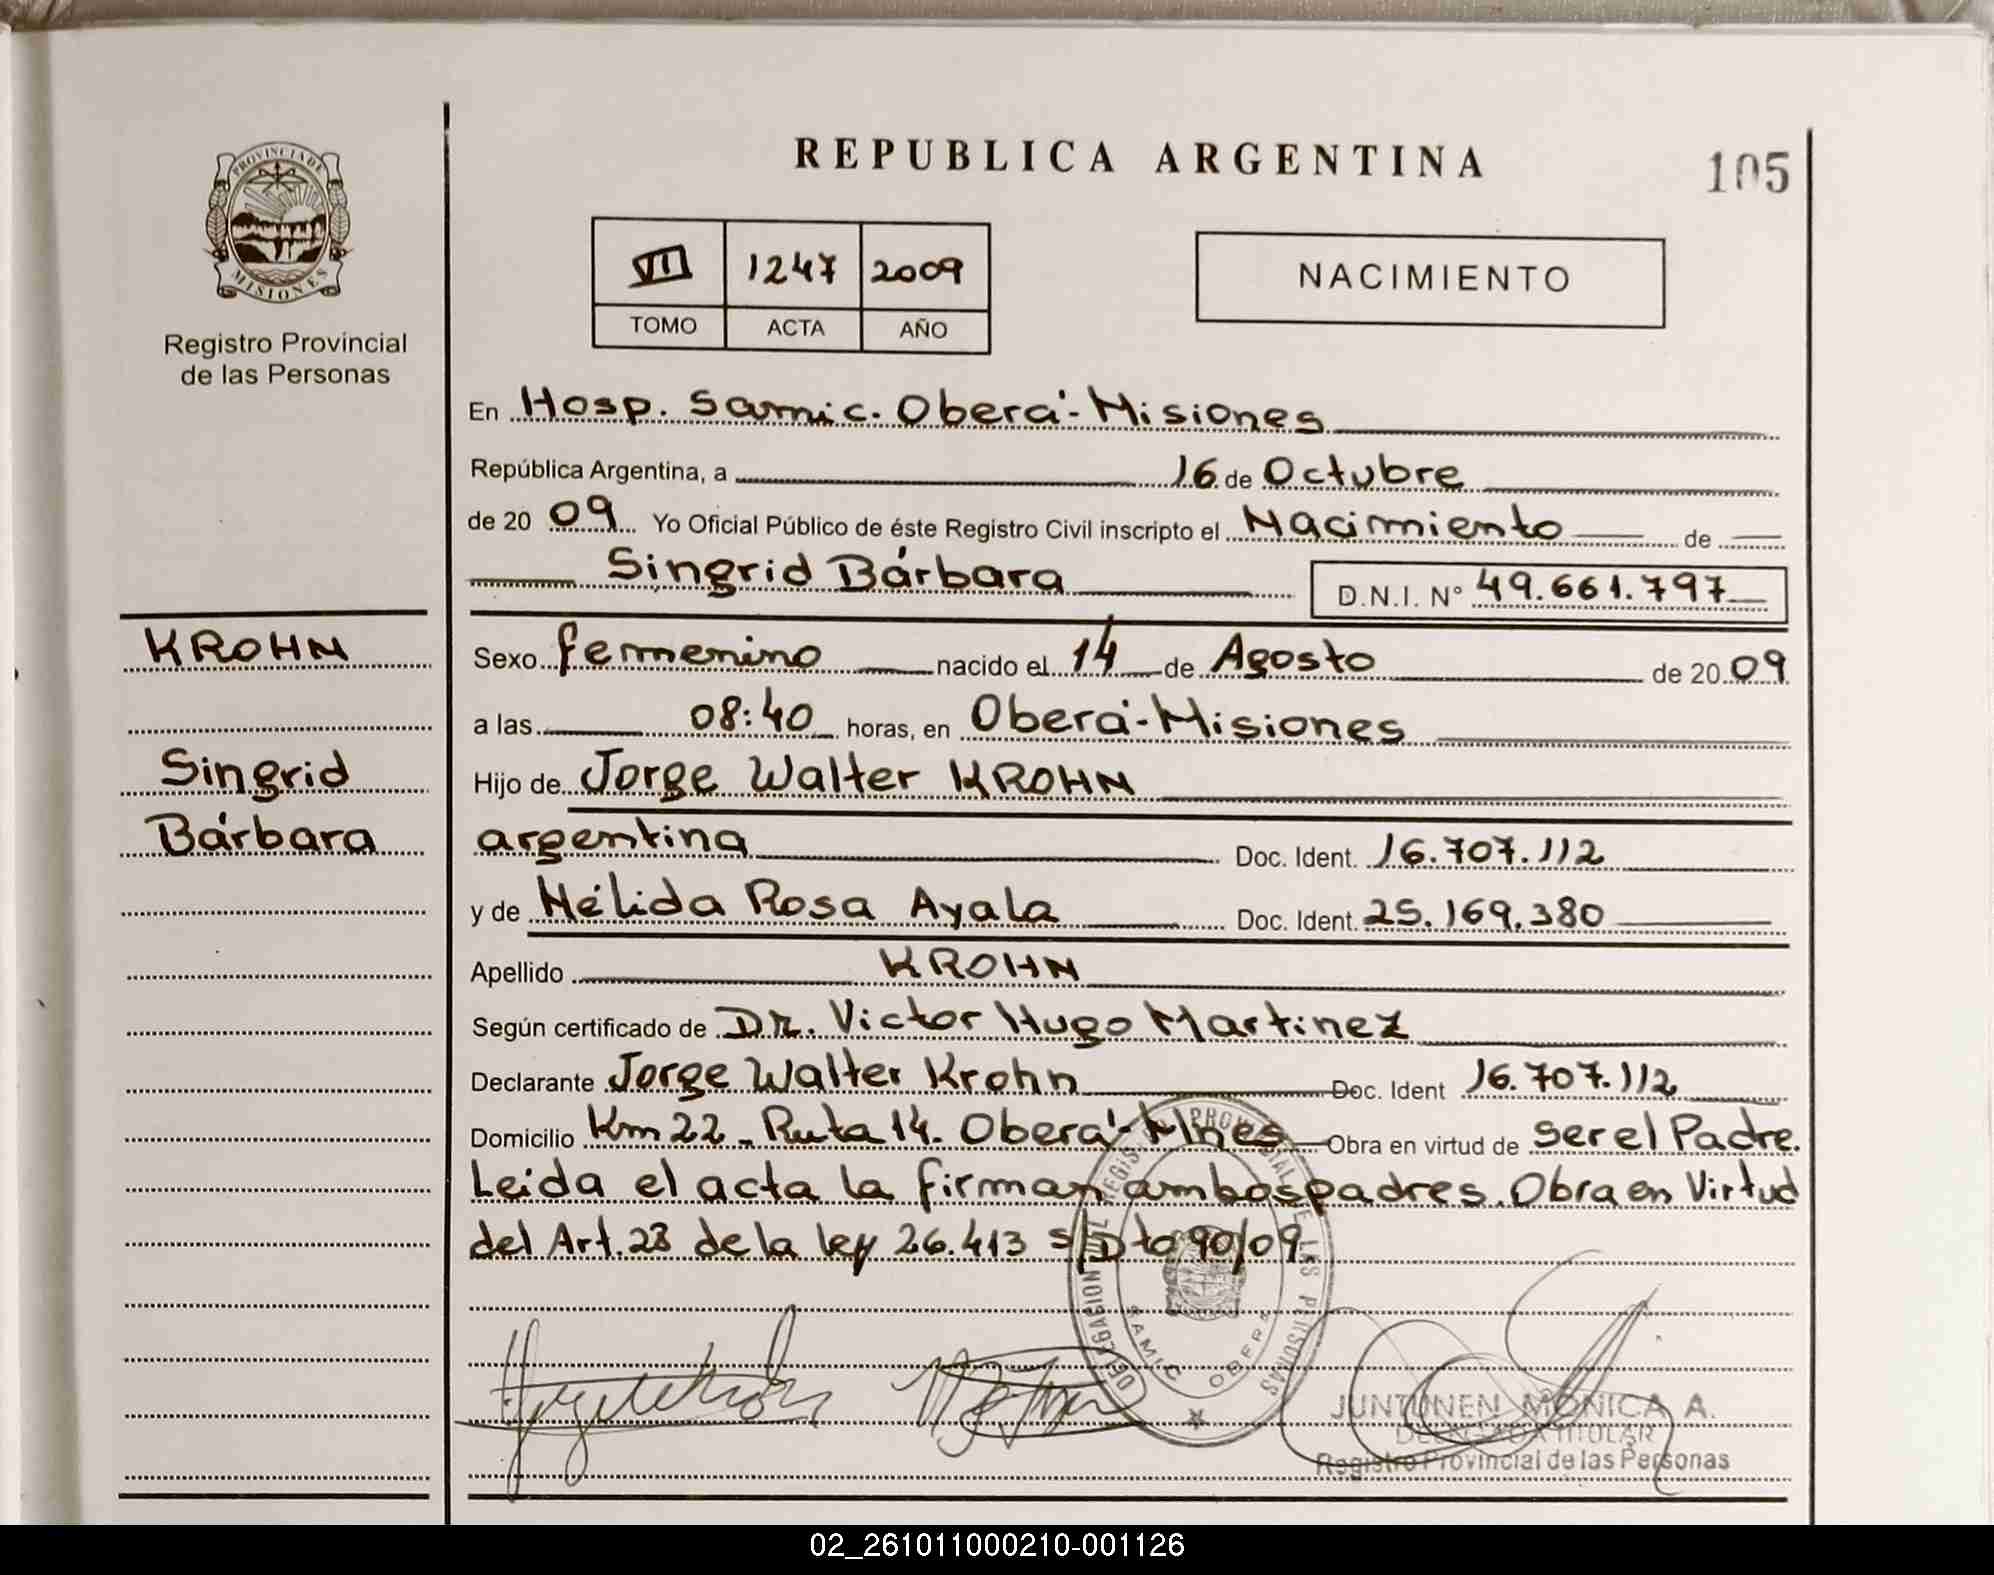 REPUBLICA ARGENTINA
105
PROVINCIA DE
MISIONES
Registro Provincial
de las Personas
VII 1247 2009
TOMO ACTA AÑO
NACIMIENTO
En Hosp. Samic. Oberá-Misiones
República Argentina, a 16 de Octubre
de 2009 Yo Oficial Público de éste Registro Civil inscripto el Nacimiento de
Singrid Bárbara D.N.I. N° 49.661.797
KROHN
Singrid
Bárbara
Sexo femenino nacido el 14 de Agosto de 2009
a las 08:40 horas, en Oberá-Misiones
Hijo de Jorge Walter KROHN
argentina Doc. Ident. 16.707.112
y de Nélida Rosa Ayala Doc. Ident. 25.169.380
Apellido KROHN
Según certificado de DR. Victor Hugo Martinez
Declarante Jorge Walter Krohn Doc. Ident 16.707.112
Domicilio Km 22 - Ruta 14. Oberá-Mnes Obra en virtud de ser el Padre.
Leida el acta la firman ambos padres. Obra en Virtud
del Art. 28 de la ley 26.413 s/Dto 90/09
DELEGACION REGISTRO PROVINCIAL DE LAS PERSONAS
SAMIC OBERA
JUNTUNEN MONICA A.
DELEGADA TITULAR
Registro Provincial de las Personas
02_261011000210-001126